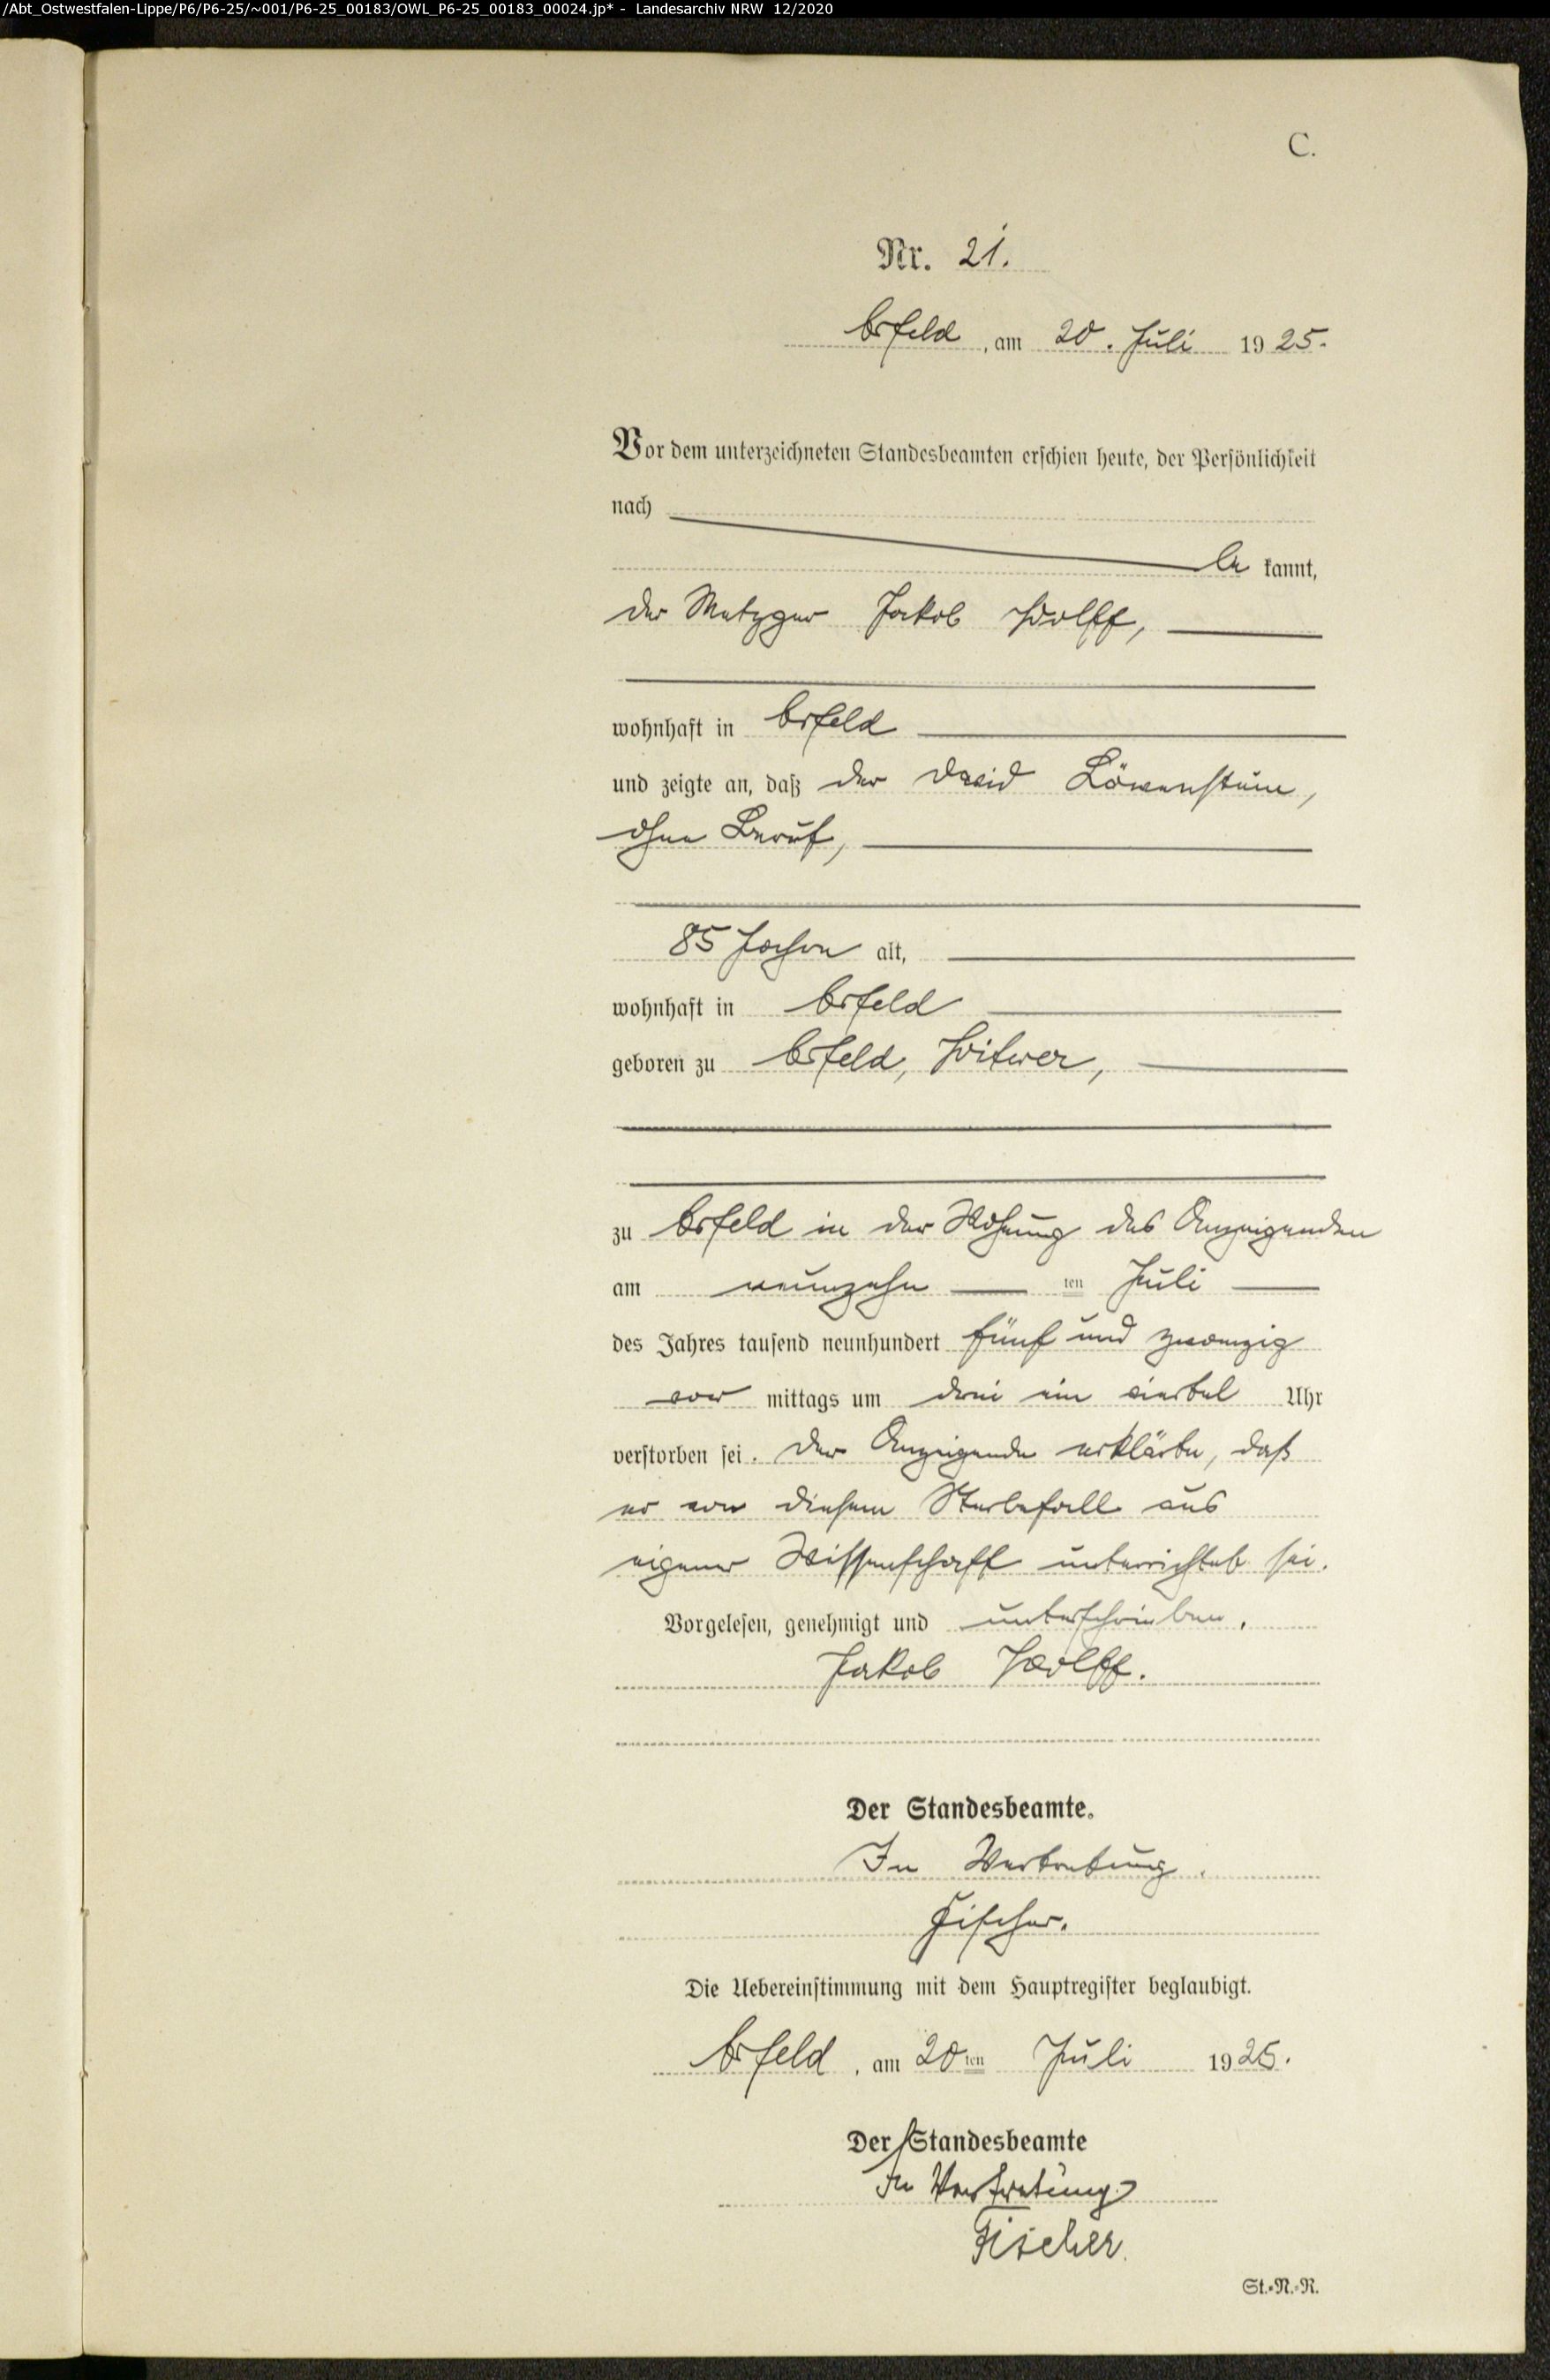 /Abt_Ostwestfalen-Lippe/P6/P6-25/~001/P6-25_00183/OWL_P6-25_00183_00024.jp* - Landesarchiv NRW 12/2020
C.
Nr. 21.
Erfeld, am 20. Juli 1925.
Vor dem unterzeichneten Standesbeamten erschien heute, der Persönlichkeit
nach
be kannt,
der Metzger Jakob Wolff,
wohnhaft in Erfeld
und zeigte an, daß der David Löwenstein,
ohne Beruf,
85 Jahre alt,
wohnhaft in Erfeld
geboren zu Erfeld, Witwer,
zu Erfeld in der Wohnung des Anzeigenden
am neunzehn ten Juli
des Jahres tausend neunhundert fünf und zwanzig
vor mittags um drei ein viertel Uhr
verstorben sei. Der Anzeigende erklärte, daß
er von diesem Sterbefall aus
eigener Wissenschaft unterrichtet sei.
Vorgelesen, genehmigt und unterschrieben.
Jakob Wolff.
Der Standesbeamte.
In Vertretung.
Fischer.
Die Uebereinstimmung mit dem Hauptregister beglaubigt.
Erfeld, am 20ten Juli 1925.
Der Standesbeamte
In Vertretung
Fischer.
St.-N.-R.